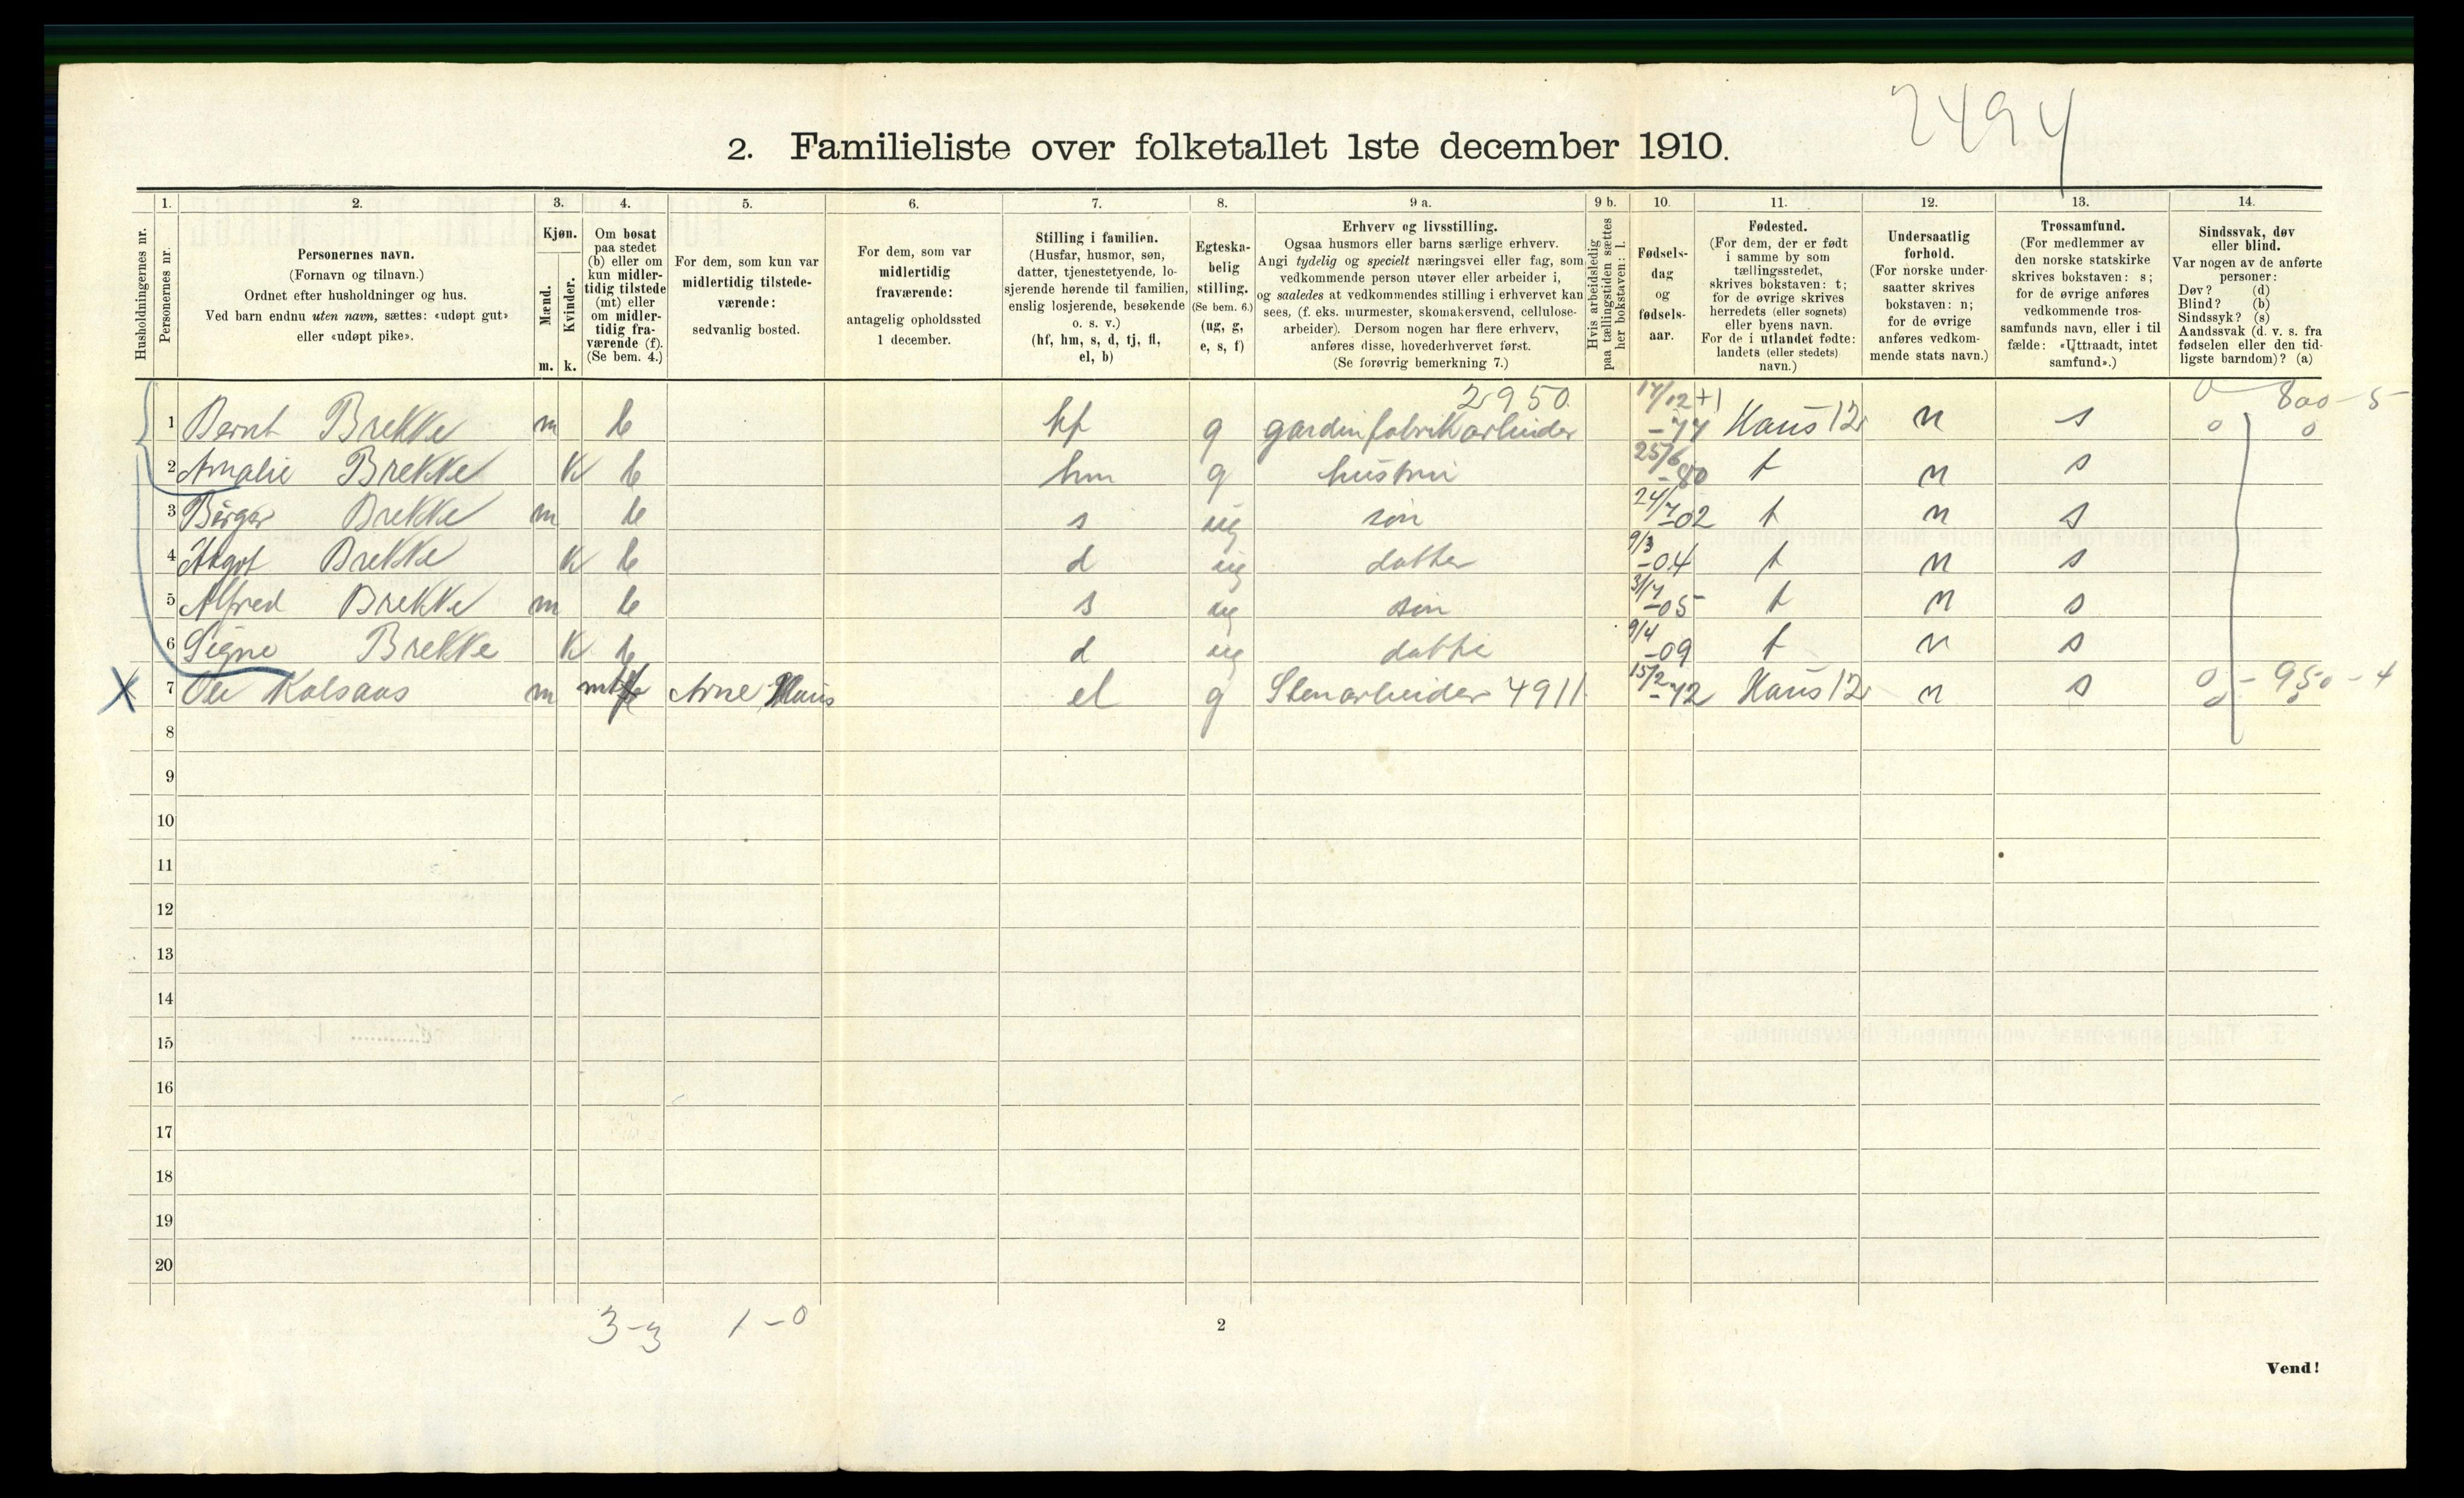 2494
2. Familieliste over folketallet 1ste december 1910.
1. 2. 3. 4. 5. 6. 7. 8. 9 a. 9 b. 10. 11. 12. 13. 14.
Husholdningernes nr.
Personernes nr.
Personernes navn.
(Fornavn og tilnavn.)
Ordnet efter husholdninger og hus.
Ved barn endnu uten navn, sættes: «udøpt gut»
eller «udøpt pike».
Kjøn.
Mænd.
Kvinder.
m. k.
Om bosat
paa stedet
(b) eller om
kun midler-
tidig tilstede
(mt) eller
om midler-
tidig fra-
værende (f).
(Se bem. 4.)
For dem, som kun var
midlertidig tilstede-
værende:
sedvanlig bosted.
For dem, som var
midlertidig
fraværende:
antagelig opholdssted
1 december.
Stilling i familien.
(Husfar, husmor, søn,
datter, tjenestetyende, lo-
sjerende hørende til familien,
enslig losjerende, besøkende
o. s. v.)
(hf, hm, s, d, tj, fl,
el, b)
Egteska-
belig
stilling.
(Se bem. 6.)
(ug, g,
e, s, f)
Erhverv og livsstilling.
Ogsaa husmors eller barns særlige erhverv.
Angi tydelig og specielt næringsvei eller fag, som
vedkommende person utøver eller arbeider i,
og saaledes at vedkommendes stilling i erhvervet kan
sees, (f. eks. murmester, skomakersvend, cellulose-
arbeider). Dersom nogen har flere erhverv,
anføres disse, hovederhvervet først.
(Se forøvrig bemerkning 7.)
Hvis arbeidsledig
paa tællingstiden sættes
her bokstaven: l.
Fødsels-
dag
og
fødsels-
aar.
Fødested.
(For dem, der er født
i samme by som
tællingsstedet,
skrives bokstaven: t;
for de øvrige skrives
herredets (eller sognets)
eller byens navn.
For de i utlandet fødte:
landets (eller stedets)
navn.)
Undersaatlig
forhold.
(For norske under-
saatter skrives
bokstaven: n;
for de øvrige
anføres vedkom-
mende stats navn.)
Trossamfund.
(For medlemmer av
den norske statskirke
skrives bokstaven: s;
for de øvrige anføres
vedkommende tros-
samfunds navn, eller i til
fælde: «Uttraadt, intet
samfund».)
Sindssvak, døv
eller blind.
Var nogen av de anførte
personer:
Døv? (d)
Blind? (b)
Sindssyk? (s)
Aandssvak (d. v. s. fra
fødselen eller den tid-
ligste barndom)? (a)
2950. 17/12 +1 0 800-5
1 Bernt Brekke m b hf g gardinfabrikarbeider -77 Haus 12 n s 0 0
2 Amalie Brekke k b hm g hustru 25/6 -80 t n s
3 Birger Brekke m b s ug søn 24/7 -02 t n s
4 Aagot Brekke k b d ug datter 9/3 -04 t n s
5 Alfred Brekke m b s ug søn 3/7 -05 t n s
6 Signe Brekke k b d ug datter 9/4 -09 t n s
X 7 Ole Kalsaas m mt Arne Haus el g Stenarbeider 4911 15/2 -72 Haus 12 n s 0 - 950 - 4
8
9
10
11
12
13
14
15
16
17
18
19
20
3-3 1-0
2
Vend!